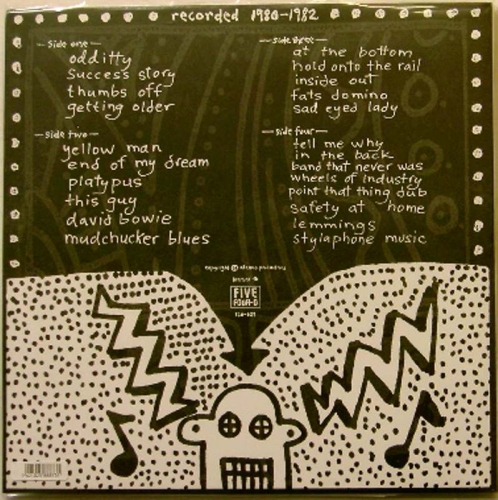 recorded 1980-1982
— Side one —
oddity
success story
thumbs off
getting older
— side two —
yellow man
end of my dream
platypus
this guy
david bowie
mudchucker blues
— side three —
at the bottom
hold onto the rail
inside out
fats domino
sad eyed lady
— side four —
tell me why
in the back
band that never was
wheels of industry
point that thing dub
safety at home
lemmings
stylaphone music
copyright
FIVE
FOUR-O